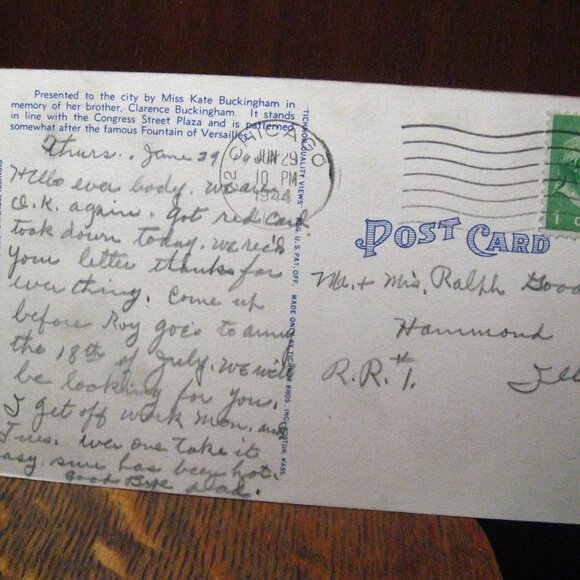 Presented to the city by Miss Kate Buckingham in
memory of her brother, Clarence Buckingham. It stands
in line with the Congress Street Plaza and is patterned
somewhat after the famous Fountain of Versailles.
Thurs., June 29
Hello ever body, we are
O.K. again. Got red card
took down today. we rec'd
your letter thanks for
ever thing. Come up
before Roy goes to army
the 18th of July. we will
be looking for you.
I get off work Mon. and
Tues. wer one take it
easy. sure has been hot.
Good Bye Dad.
CHICAGO
JUN 29
10 PM
1944
TICHNOR QUALITY VIEWS REG. U.S. PAT. OFF. MADE ONLY BY TICHNOR BROS. INC., BOSTON, MASS.
POST CARD
Mr. + Mrs. Ralph Good
Hammond
R.R. #1. Ill